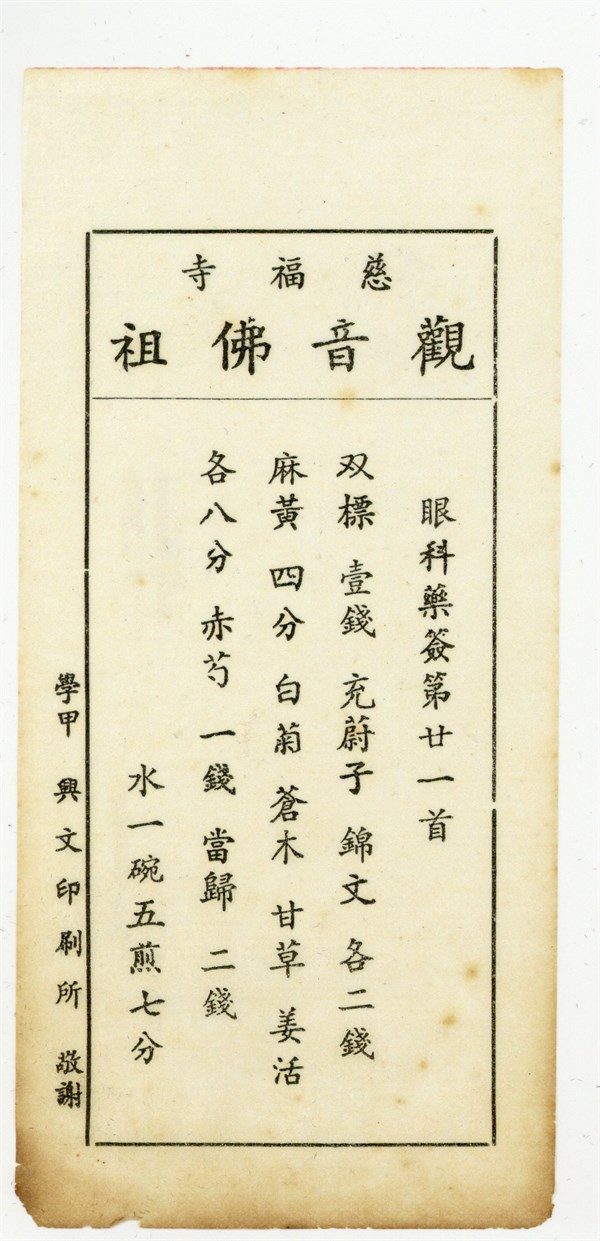 慈福寺
觀音佛祖
眼科藥簽第廿一首
双標 壹錢 充蔚子 錦文 各二錢
麻黃 四分 白菊 蒼木 甘草 姜活
各八分 赤芍 一錢 當歸 二錢
水一碗五煎七分
學甲 興文印刷所 敬謝